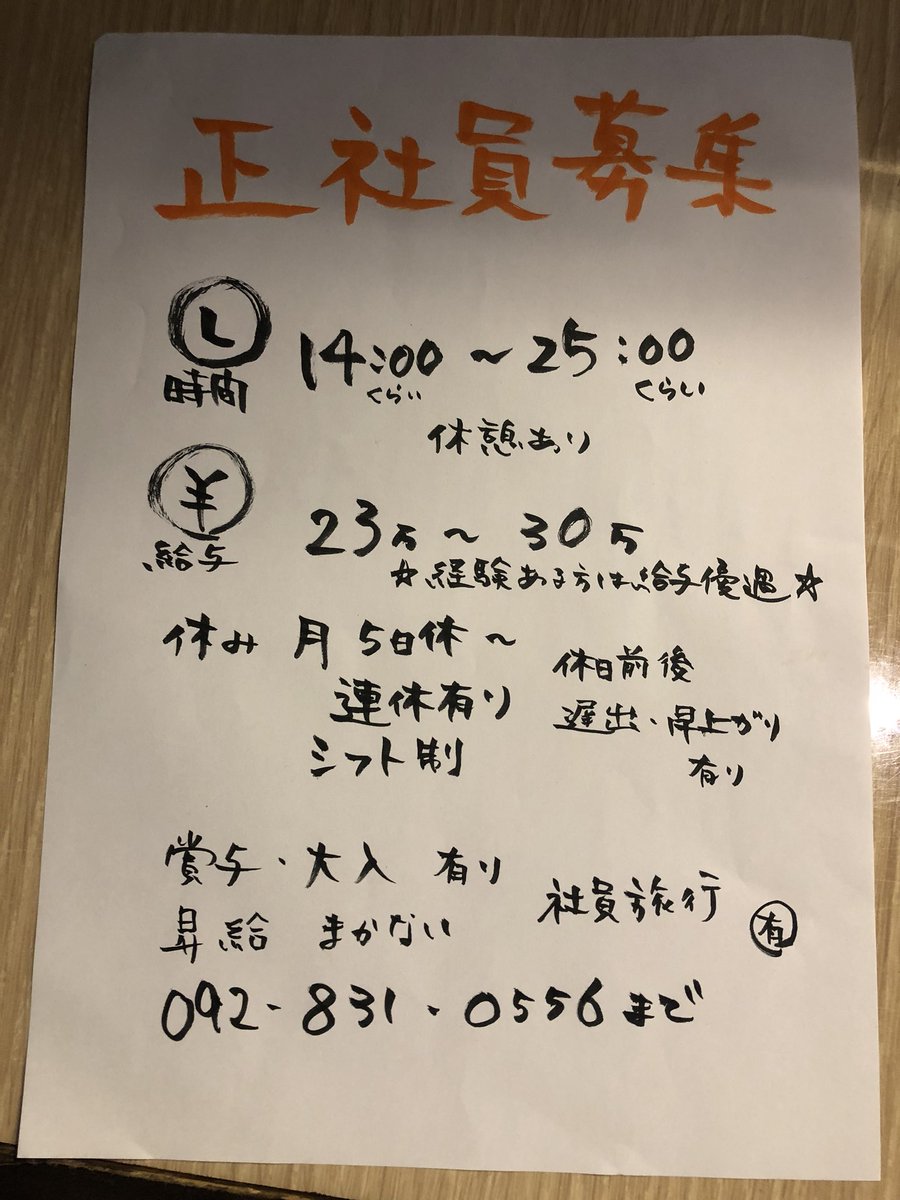 正社員募集
時間 14:00くらい ~ 25:00くらい
休憩あり
¥
給与 23万~30万
☆経験ある方は給与優遇☆
休み 月5日休~
連休有り
シフト制
休日前後
遅出・早上がり
有り
賞与・大入 有り
昇給 まかない
社員旅行 有
092-831-0556まで